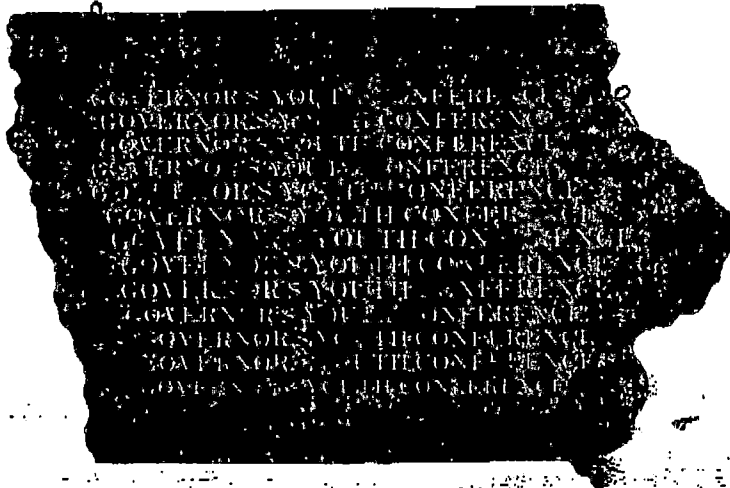 GOVERNOR'S YOUTH CONFERENCE
GOVERNOR'S YOUTH CONFERENCE
GOVERNOR'S YOUTH CONFERENCE
GOVERNOR'S YOUTH CONFERENCE
GOVERNOR'S YOUTH CONFERENCE
GOVERNOR'S YOUTH CONFERENCE
GOVERNOR'S YOUTH CONFERENCE
GOVERNOR'S YOUTH CONFERENCE
GOVERNOR'S YOUTH CONFERENCE
GOVERNOR'S YOUTH CONFERENCE
GOVERNOR'S YOUTH CONFERENCE
GOVERNOR'S YOUTH CONFERENCE
GOVERNOR'S YOUTH CONFERENCE